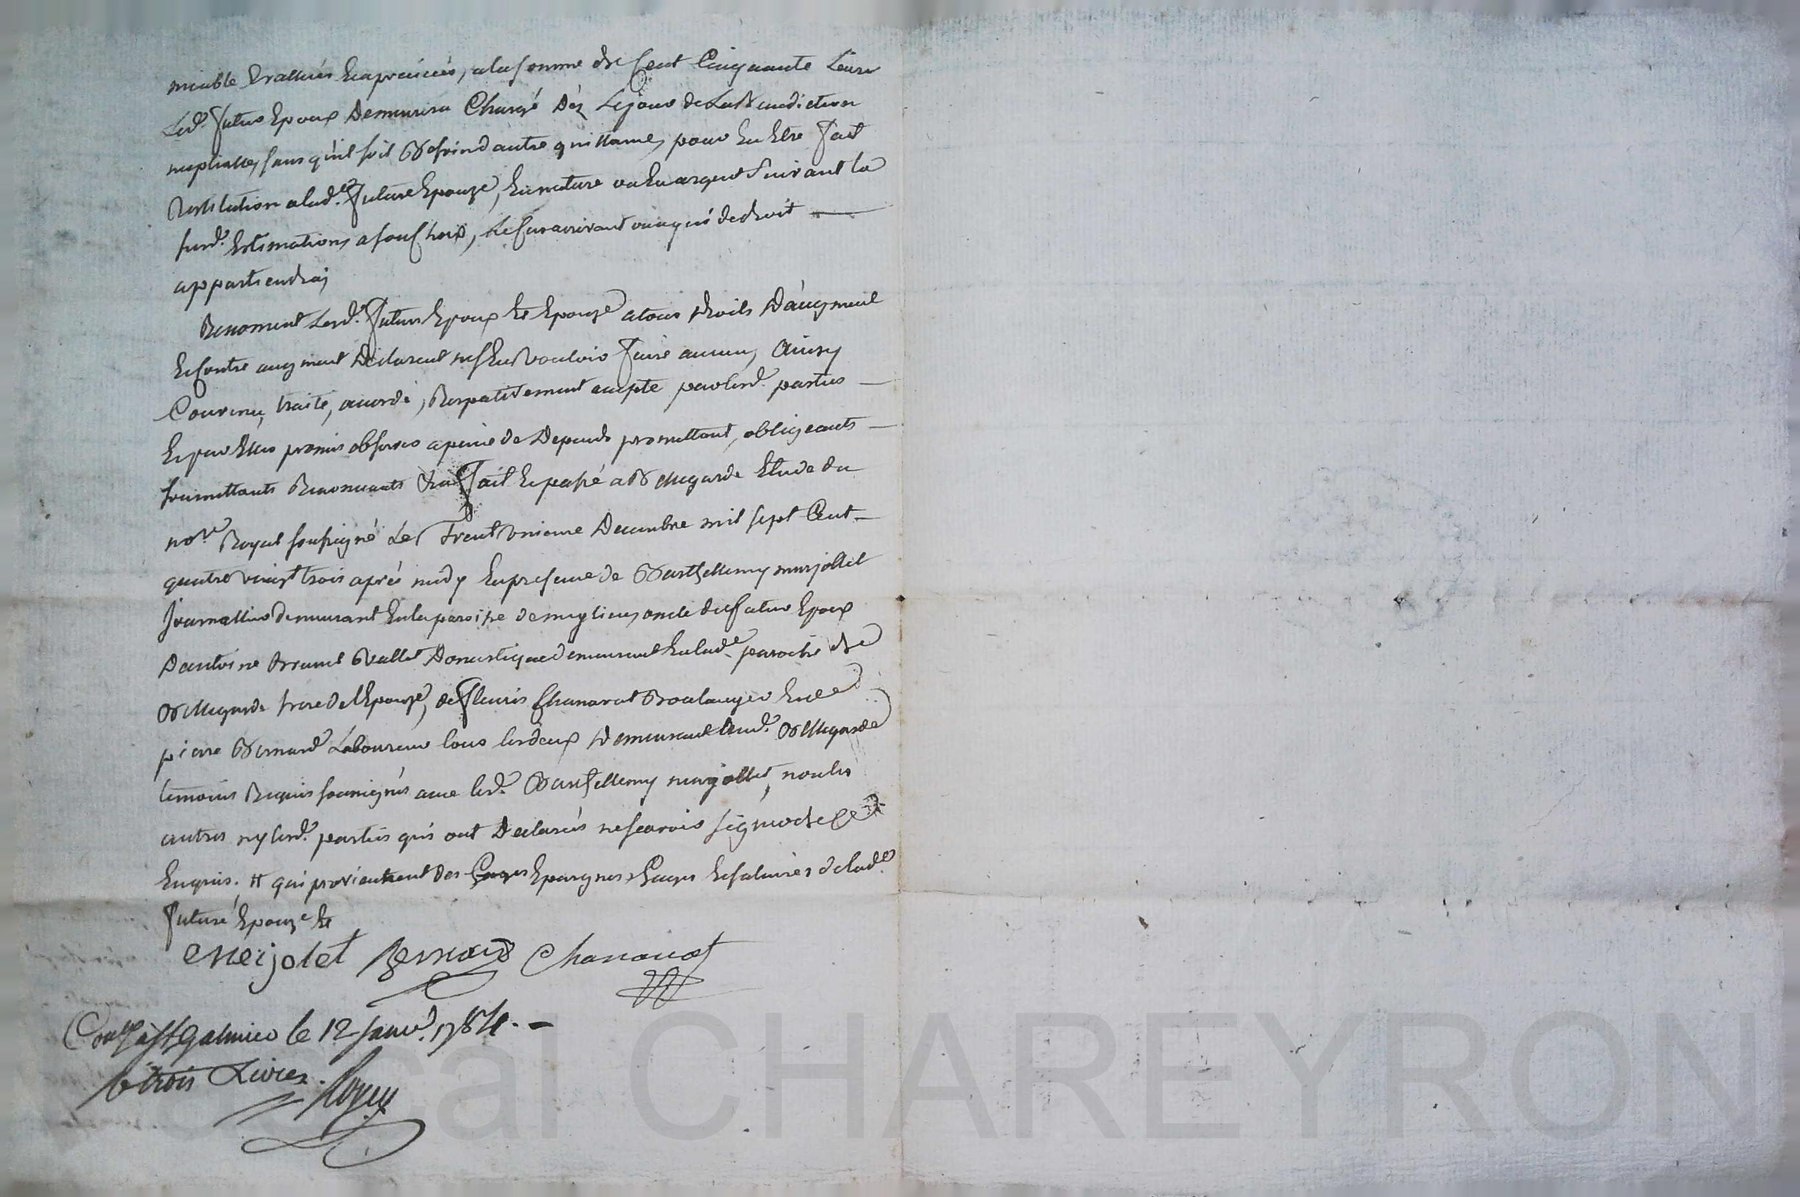 meuble Evallués Enapreciées, alasomme de Cent Cinquante Livres
Led.t futur Epoux Demeurera Chargé Dez Le jour de La Benediction
nuptialle, sans qu'il soit Besoin d'autre quittance, pour En Etre fait
Restitution a lad.te future Epouze, En nature ou En argent Suivant la
susd.te Estimations a son choix, Le cas arrivant ou a qui de droit
appartiendra;
Renoncent Lesd.ts futurs Epoux Et Epouze a tous droits D'augment
Et contre augment Déclarent n'En Vouloir faire aucun, Ainsy
Convenu, traité, accordé, Respectivement accepté par lesd.ts parties
Et par Elles promis observer a peine de Depends promettant, obligeants
soumettants Renonceants &ra fait Et passé a Bellegarde Etude du
no.re Royal soussigné Le Trent Unieme Decembre mil sept Cent
quatre vingt trois après midy En presence de Barthellemy merjollet
Journallier demeurant En la paroisse de meylieu, oncle du futur Epoux
D'antoine Vallet Domestique demeurant En lad.te paroisse de
Bellegarde frere de l'Epouze, de fleuris Chanavat Boulanger Et de
pierre Bernard Laboureur tous les deux demeurant aud.t Bellegarde
temoins Requis soussignés avec led.t Barthellemy merjollet, non les
autres ny lesd.ts parties qui ont Déclarés ne scavoir signer de ce
Enquis. # qui proviennent des Epargnes Gages Et salaires de lad.te
future Epouze Et
merjolet Bernard Chanavat
Con.lé a St Galmier le 12 janv.r 1784. —
R trois Livres.